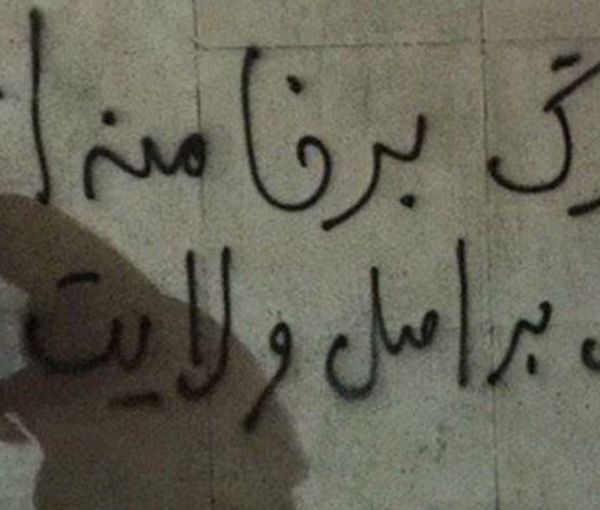 رگ بر خامنه ا
بر اصل ولایت